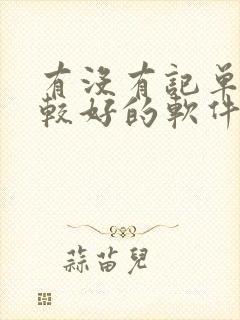 有沒有記單
較好的軟件
蒜苗兒